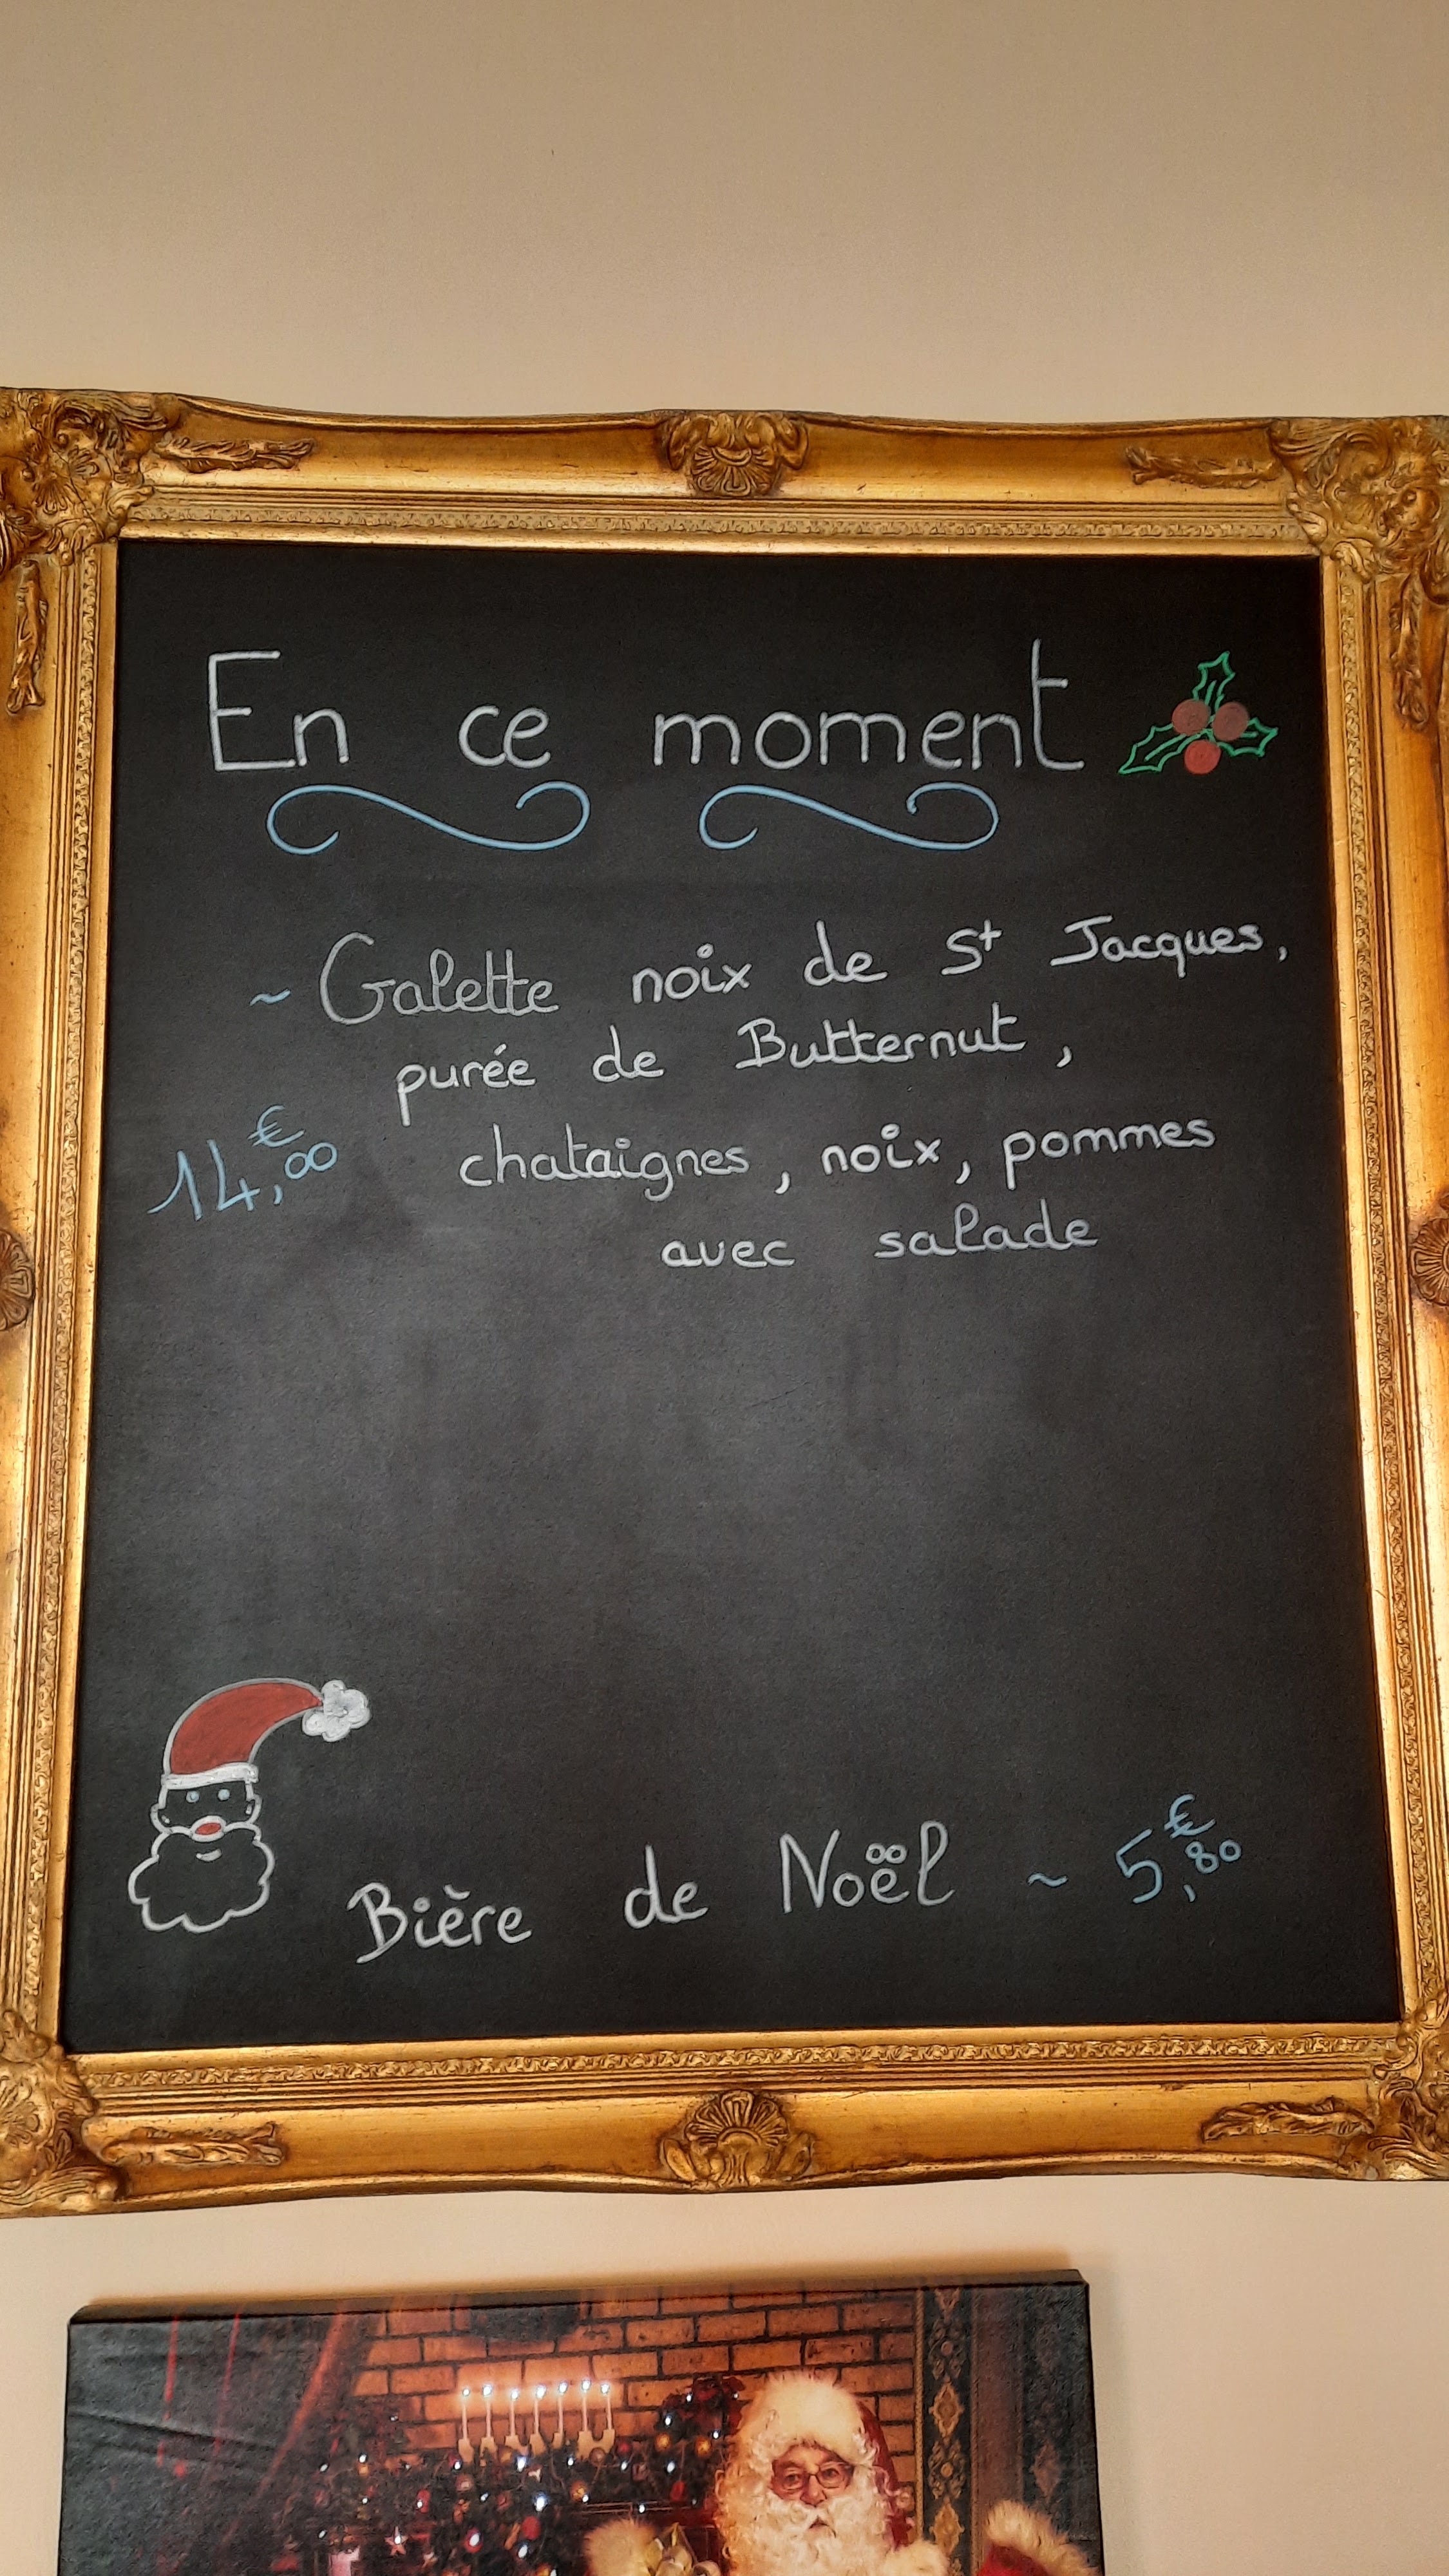 En ce moment
~ Galette noix de St Jacques,
purée de Butternut,
14,€00 chataignes, noix, pommes
avec salade
Bière de Noël ~ 5,€80